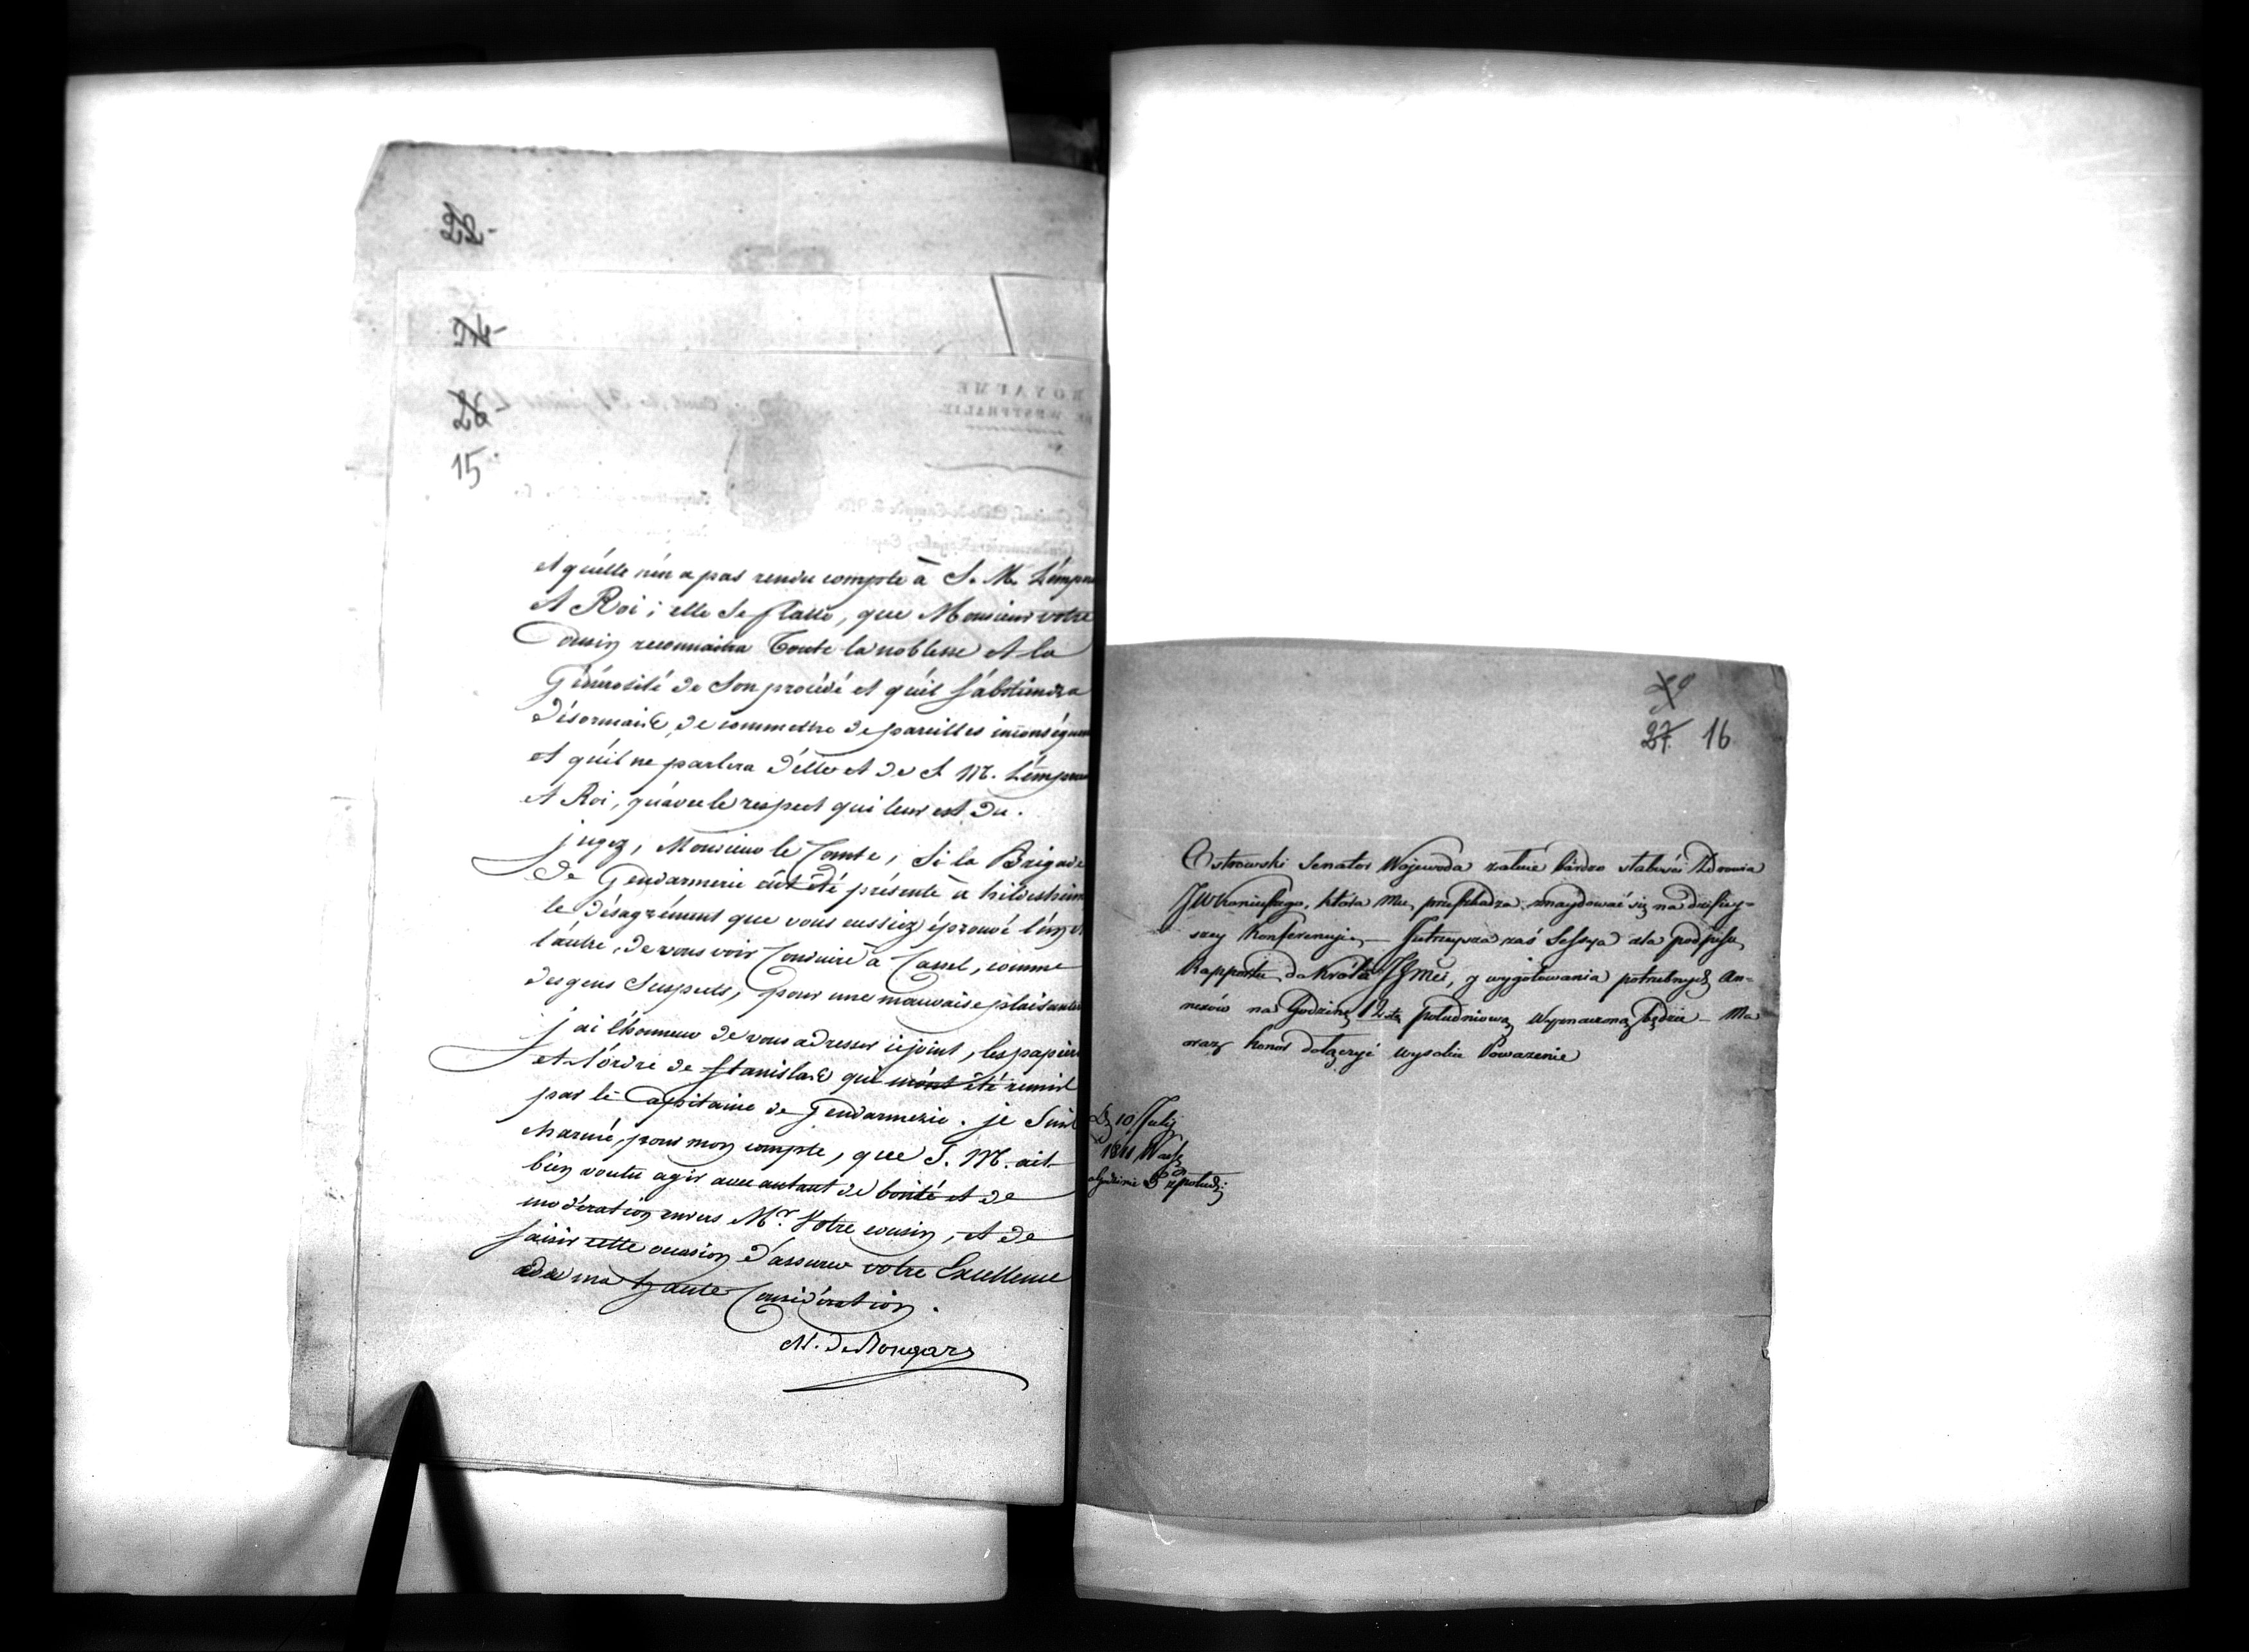 22-
24-
26-
15
et qu'elle n'en a pas rendu compte à S. M. L'emp
et Roi; elle se flatte, que Monsieur votre
Cousin reconnaitra Toute la noblesse et la
Générosité de Son procédé et qu'il s'abstiendra
désormais, de commettre de pareilles inconséqu
et qu'il ne parlera d'elle et de S. M. L'emp
et Roi, qu'avec le respect qui leur est du.
jugez, Monsieur le Comte, Si la Brigade
de Gendarmerie eût été présente à hildesheim
le désagrément que vous eussiez éprouvé l'un et
l'autre, de vous voir Conduire à Cassel, comme
des gens Suspects, pour une mauvaise plaisanter
j'ai l'honneur de vous adresser ci joint, les papiers
et l'ordre de Stanislas qui m'ont été remis
par le Capitaine de Gendarmerie. je Suis
charmé, pour mon compte, que S. M. ait
bien voulu agir avec autant de bonté et de
modération envers Mr. Votre cousin, et de
saisir cette occasion d'assurer votre Excellence
de ma haute Considération.
M. de Bongars
29
27. 16
Ostrowski Senator Wojewoda żałuie bardzo słabości Zdrowia
JW, która Mu przeszkadza znaydować się na dzisiey-
szey Konferencyi. — Jutrzeysza zaś Sessya dla podpisu
Rapportu do Króla JJMci, y wygotowania potrzebnych An-
nexów na Godzinę 12stą południową wyznaczoną będzie — Ma
oraz honor dołączyć wysokie Poważenie
D 10 July
1811 Warsz
o godzinie 6 z połud: